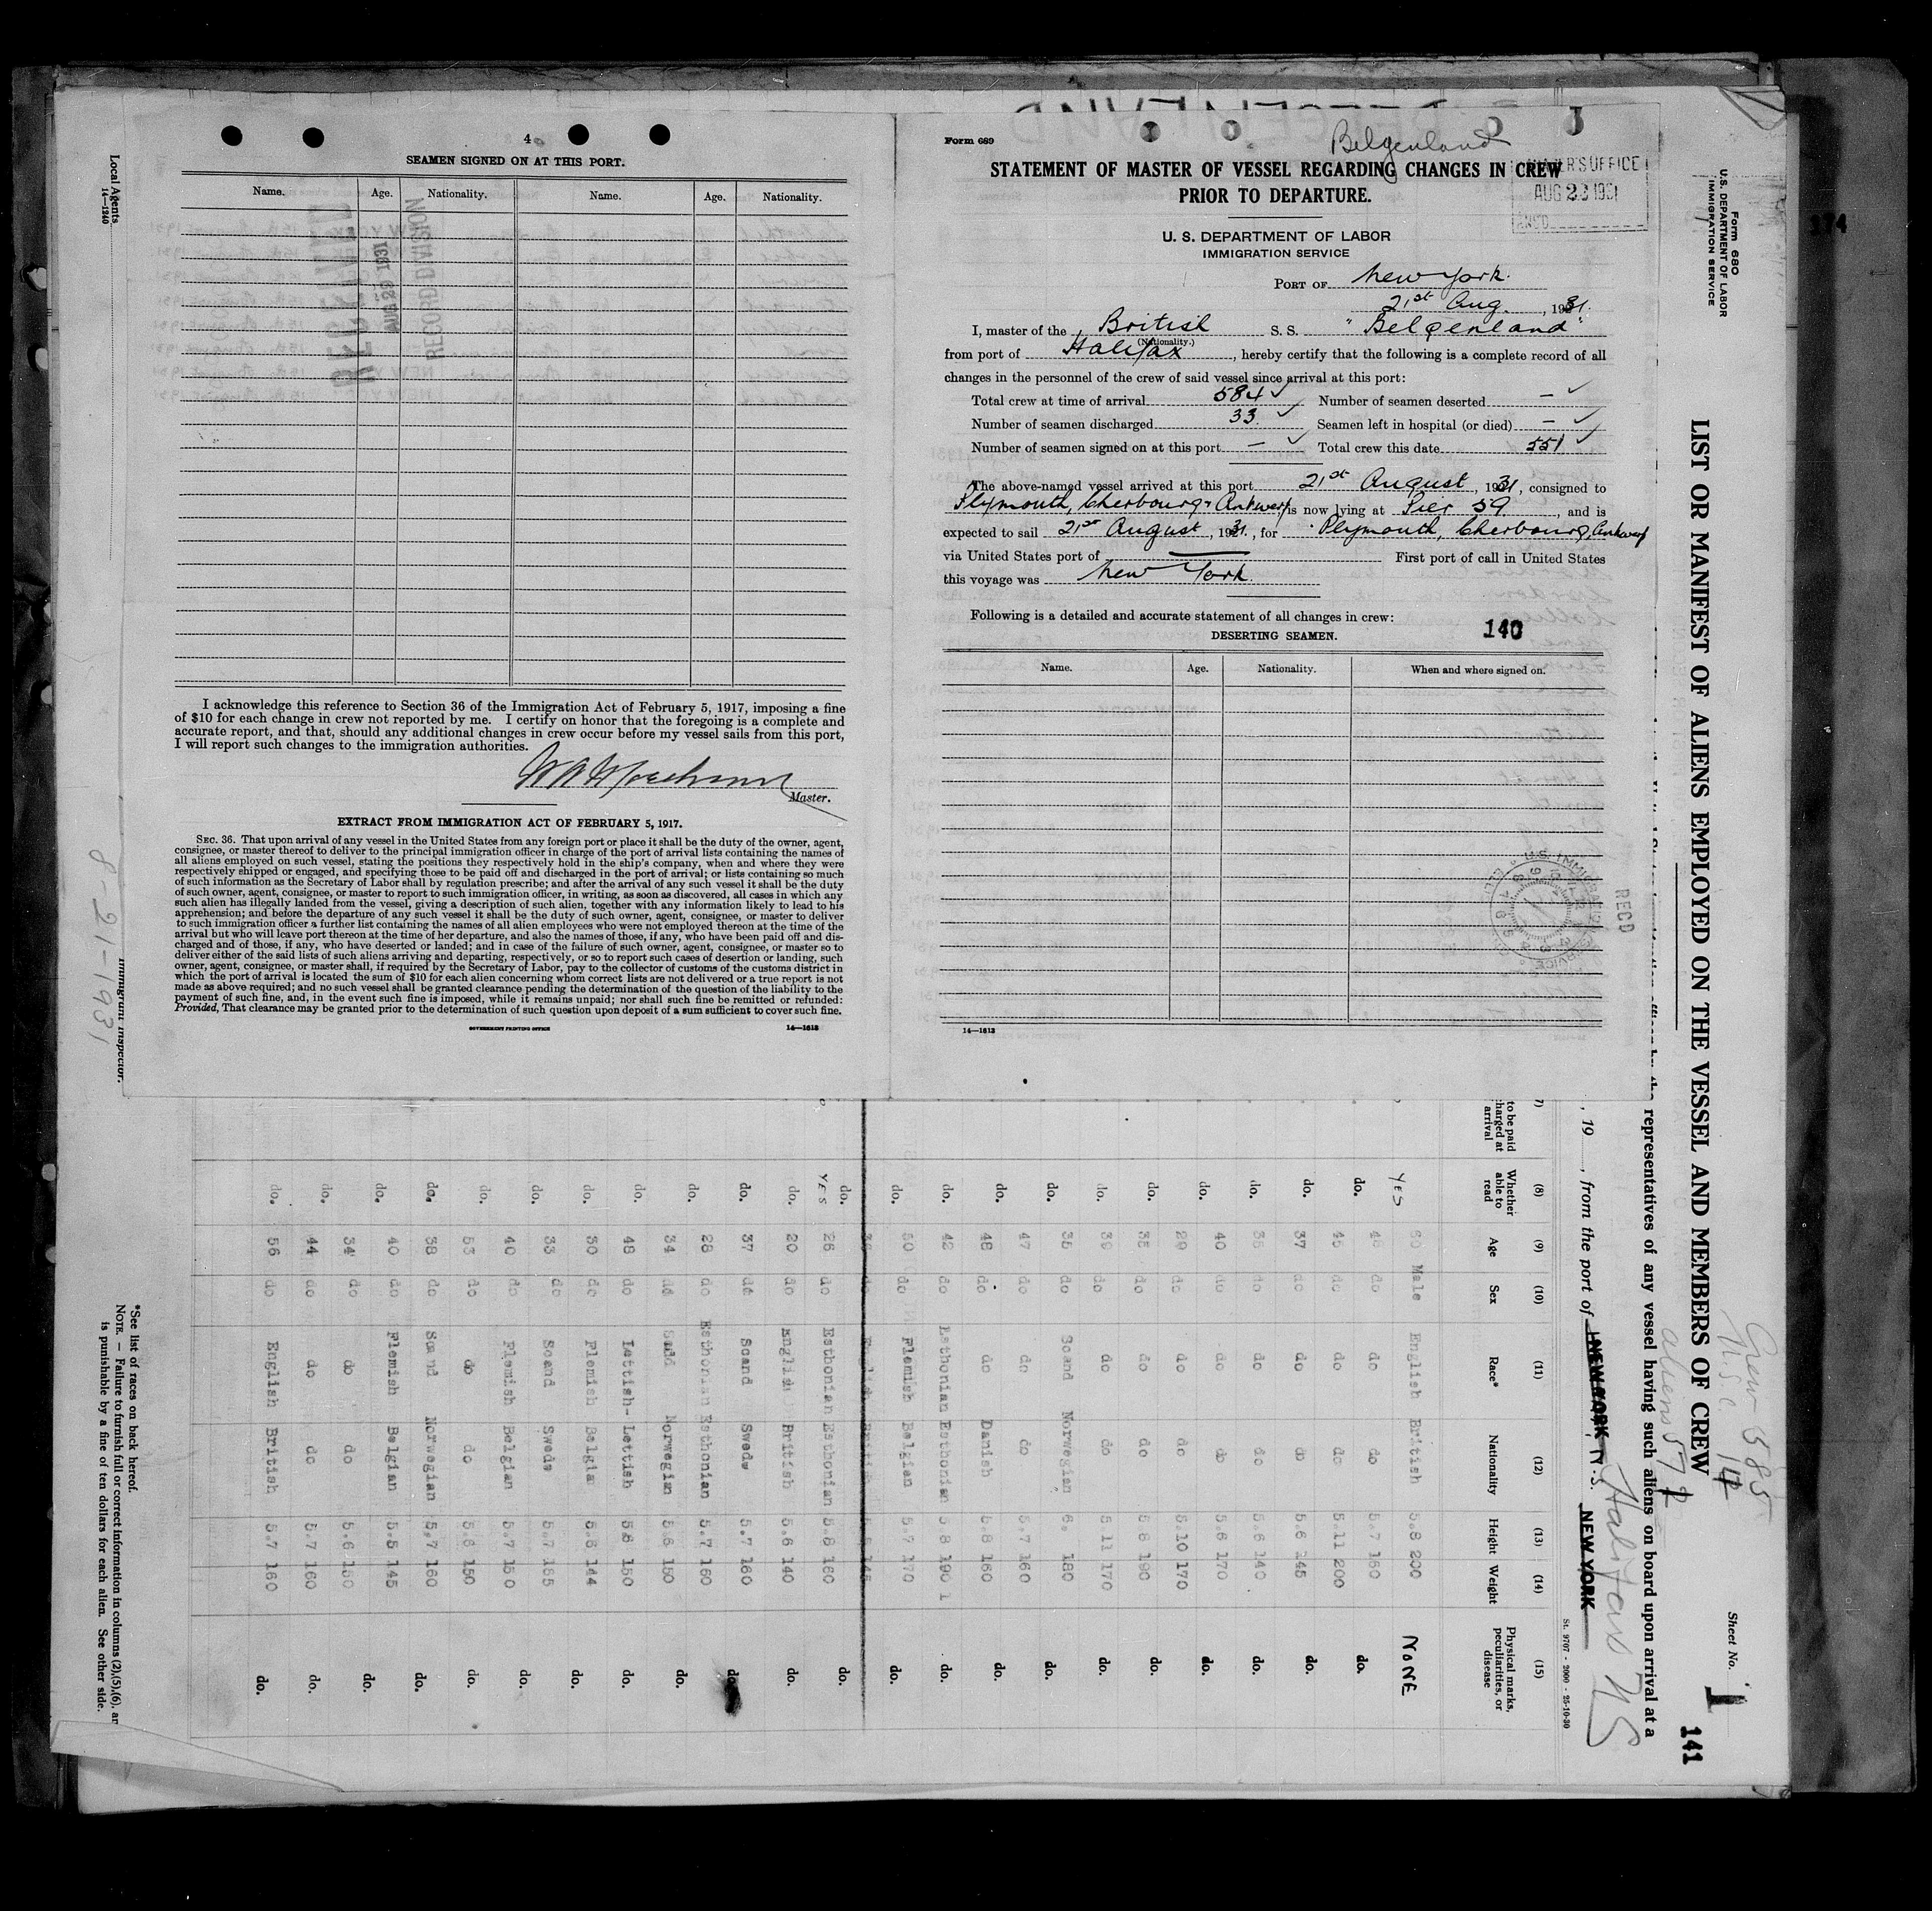 4
SEAMEN SIGNED ON AT THIS PORT.
Name. Age. Nationality. Name. Age. Nationality.
I acknowledge this reference to Section 36 of the Immigration Act of February 5, 1917, imposing a fine
of $10 for each change in crew not reported by me. I certify on honor that the foregoing is a complete and
accurate report, and that, should any additional changes in crew occur before my vessel sails from this port,
I will report such changes to the immigration authorities.
Master.
EXTRACT FROM IMMIGRATION ACT OF FEBRUARY 5, 1917.
SEC. 36. That upon arrival of any vessel in the United States from any foreign port or place it shall be the duty of the owner, agent,
consignee, or master thereof to deliver to the principal immigration officer in charge of the port of arrival lists containing the names of
all aliens employed on such vessel, stating the positions they respectively hold in the ship's company, when and where they were
respectively shipped or engaged, and specifying those to be paid off and discharged in the port of arrival; or lists containing so much
of such information as the Secretary of Labor shall by regulation prescribe; and after the arrival of any such vessel it shall be the duty
of such owner, agent, consignee, or master to report to such immigration officer, in writing, as soon as discovered, all cases in which any
such alien has illegally landed from the vessel, giving a description of such alien, together with any information likely to lead to his
apprehension; and before the departure of any such vessel it shall be the duty of such owner, agent, consignee, or master to deliver
to such immigration officer a further list containing the names of all alien employees who were not employed thereon at the time of the
arrival but who will leave port thereon at the time of her departure, and also the names of those, if any, who have been paid off and dis-
charged and of those, if any, who have deserted or landed; and in case of the failure of such owner, agent, consignee, or master so to
deliver either of the said lists of such aliens arriving and departing, respectively, or so to report such cases of desertion or landing, such
owner, agent, consignee, or master shall, if required by the Secretary of Labor, pay to the collector of customs of the customs district in
which the port of arrival is located the sum of $10 for each alien concerning whom correct lists are not delivered or a true report is not
made as above required; and no such vessel shall be granted clearance pending the determination of the question of the liability to the
payment of such fine, and, in the event such fine is imposed, while it remains unpaid; nor shall such fine be remitted or refunded:
Provided, That clearance may be granted prior to the determination of such question upon deposit of a sum sufficient to cover such fine.
GOVERNMENT PRINTING OFFICE 14—1613
Form 689
Belgenland
STATEMENT OF MASTER OF VESSEL REGARDING CHANGES IN CREW
PRIOR TO DEPARTURE.
AUG 23 1931
U. S. DEPARTMENT OF LABOR
IMMIGRATION SERVICE
PORT OF New York.
21st Aug., 1931.
I, master of the British S. S. "Belgenland"
(Nationality.)
from port of Halifax, hereby certify that the following is a complete record of all
changes in the personnel of the crew of said vessel since arrival at this port:
Total crew at time of arrival 584 ✓ Number of seamen deserted — ✓
Number of seamen discharged 33 ✓ Seamen left in hospital (or died) — ✓
Number of seamen signed on at this port — ✓ Total crew this date 551 ✓
The above-named vessel arrived at this port 21st August, 1931, consigned to
Plymouth, Cherbourg, Antwerp is now lying at Pier 59, and is
expected to sail 21st August, 1931., for Plymouth, Cherbourg, Antwerp
via United States port of — First port of call in United States
this voyage was New York.
Following is a detailed and accurate statement of all changes in crew:
140
DESERTING SEAMEN.
Name. Age. Nationality. When and where signed on.
14—1613
RECD
Local Agents
14—1240
RECORD DIVISION
8-21-1931
Immigrant Inspector.
174
Form 680
U.S. DEPARTMENT OF LABOR
IMMIGRATION SERVICE
LIST OR MANIFEST OF ALIENS EMPLOYED ON THE VESSEL AND MEMBERS OF CREW
Crew 585
Sheet No. 1
141
representatives of any vessel having such aliens on board upon arrival at a
, 19 , from the port of NEW YORK Halifax NS
NEW YORK
St. 9707 - 2000 - 25-10-30
(8) (9) (10) (11) (12) (13) (14) (15)
to be paid
charged at
arrival
Whether able to read Age Sex Race* Nationality Height Weight Physical marks, peculiarities, or disease
YES 60 Male English British 5.8 200 NONE
do. 46 do do do 5.7 160 do.
do. 45 do do do 5.11 200 do.
do. 37 do do do 5.6 145 do.
do. 35 do do do 5.6 140 do.
do. 40 do do do 5.6 170 do.
do. 29 do do do 5.10 170 do.
do. 38 do do do 5.8 190 do.
do. 39 do do do 5 11 170 do.
do. 35 do Scand Norwegian 6. 180 do.
do. 47 do do do 5.7 160 do.
do. 48 do do Danish 5.8 160 do.
do. 42 do Esthonian Esthonian 5.8 190 do.
do. 50 do Flemish Belgian 5.7 170 do.
do. YES 26 do Esthonian Esthonian 5.8 160 do.
do. 20 do English British 5.6 140 do.
do. 37 do Scand Swede 5.7 160 do.
do. 28 do Esthonian Esthonian 5.7 160 do.
do. 34 do Scand Norwegian 5.6 150 do.
do. 48 do Lettish- Lettish 5.8 150 do.
do. 30 do Flemish Belgian 5.8 144 do.
do. 33 do Scand Swede 5.7 165 do.
do. 40 do Flemish Belgian 5.7 150 do.
do. 53 do do do 5.6 150 do.
do. 38 do Scand Norwegian 5.7 160 do.
do. 40 do Flemish Belgian 5.5 145 do.
do. 34 do do do 5.6 160 do.
do. 44 do do do 5.7 160 do.
do. 56 do English British 5.7 160 do.
*See list of races on back hereof.
NOTE. — Failure to furnish full or correct information in columns (2),(5),(6), an
is punishable by a fine of ten dollars for each alien. See other side.